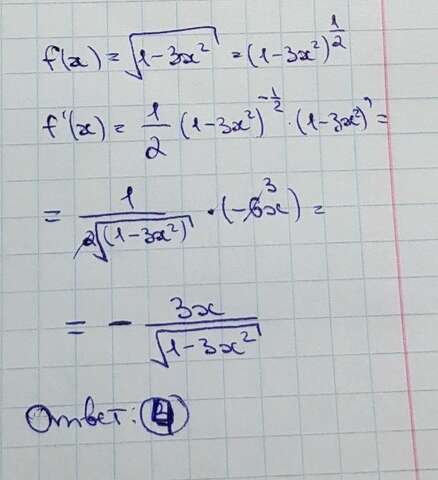 f(x) = √(1-3x²) = (1-3x²)^(1/2)
f'(x) = 1/2 (1-3x²)^(-1/2) · (1-3x²)' =
= 1/(2√((1-3x²))) · (-6³x) =
= - 3x/√(1-3x²)
Ответ: 4